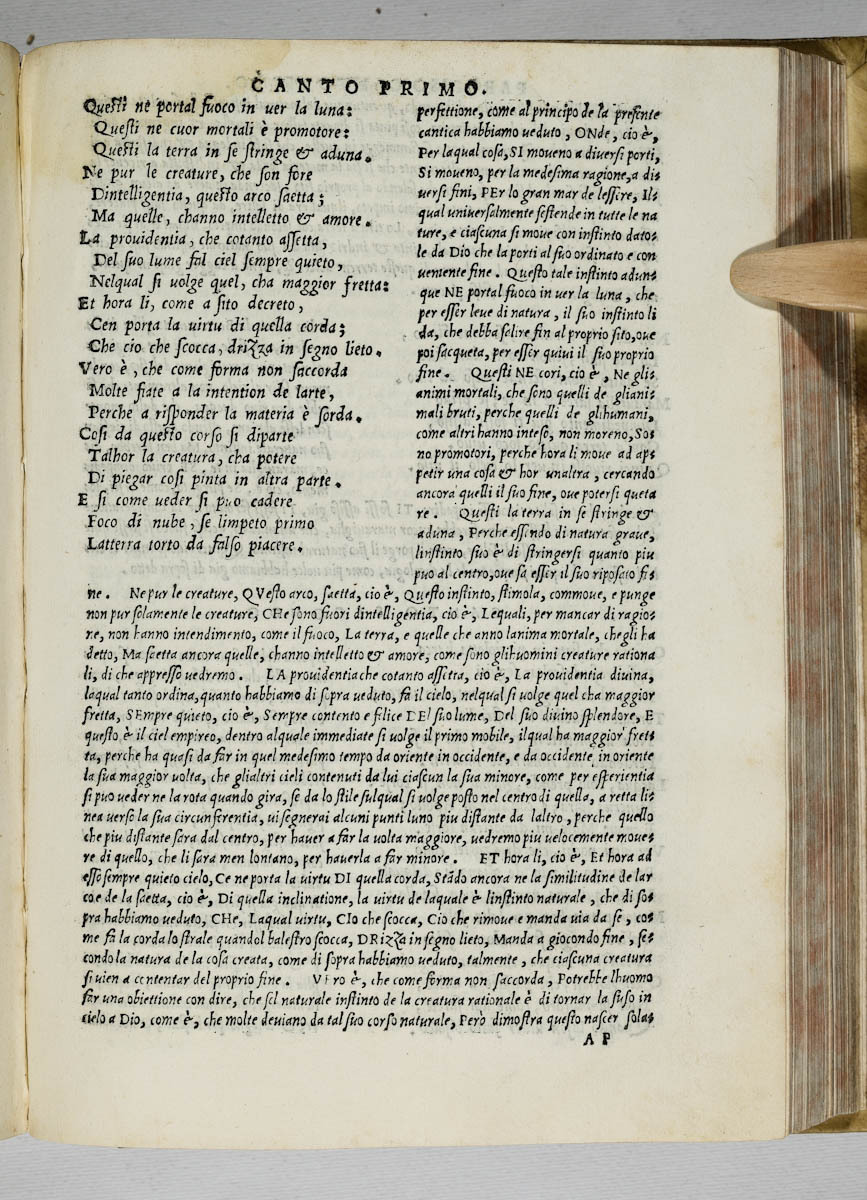 CANTO PRIMO.
Questi ne portal fuoco in uer la luna:
Questi ne cuor mortali è promotore:
Questi la terra in se stringe & aduna.
Ne pur le creature, che son fore
Dintelligentia, questo arco saetta;
Ma quelle, channo intelletto & amore.
La prouidentia, che cotanto assetta,
Del suo lume fal ciel sempre quieto,
Nelqual si uolge quel, cha maggior fretta:
Et hora li, come a sito decreto,
Cen porta la uirtu di quella corda;
Che cio che scocca, drizza in segno lieto.
Vero è, che come forma non saccorda
Molte fiate a la intention de larte,
Perche a risponder la materia è sorda.
Cosi da questo corso si diparte
Talhor la creatura, cha potere
Di piegar cosi pinta in altra parte.
E si come ueder si puo cadere
Foco di nube, se limpeto primo
Latterra torto da falso piacere.
perfettione, come al principo de la presente
cantica habbiamo ueduto, ONde, cio è,
Per laqual cosa, SI moueno a diuersi porti,
Si moueno, per la medesima ragione, a di
uersi fini, PEr lo gran mar de lessere, Il-
qual uniuersalmente sestende in tutte le na
ture, e ciascuna si moue con instinto dato-
le da Dio che la porti al suo ordinato e con
ueniente fine. Questo tale instinto adun-
que NE portal fuoco in uer la luna, che
per esser leue di natura, il suo instinto li
da, che debba salire fin al proprio sito, oue
poi sacqueta, per esser quiui il suo proprio
fine. Questi NE cori, cio è, Ne gli-
animi mortali, che sono quelli de gliani-
mali bruti, perche quelli de glihumani,
come altri hanno inteso, non moreno, So-
no promotori, perche hora li moue ad ap-
petir una cosa & hor unaltra, cercando
ancora quelli il suo fine, oue potersi queta
re. Questi la terra in se stringe &
aduna, Perche essendo di natura graue,
linstinto suo è di stringersi quanto piu
puo al centro, oue sa esser il suo riposato fi-
ne. Ne pur le creature, QVesto arco, saetta, cio è, Questo instinto, stimola, commoue, e punge
non pur solamente le creature, CHe sono fuori dintelligentia, cio è, Lequali, per mancar di ragio-
ne, non hanno intendimento, come il fuoco, La terra, e quelle che anno lanima mortale, chegli ha
detto, Ma saetta ancora quelle, channo intelletto & amore, come sono glihuomini creature rationa
li, di che appresso uedremo. LA prouidentia che cotanto assetta, cio è, La prouidentia diuina,
laqual tanto ordina, quanto habbiamo di sopra ueduto, fa il cielo, nelqual si uolge quel cha maggior
fretta, SEmpre quieto, cio è, Sempre contento e filice DEl suo lume, Del suo diuino splendore, E
questo è il ciel empireo, dentro alquale immediate si uolge il primo mobile, ilqual ha maggior fret-
ta, perche ha quasi da far in quel medesimo tempo da oriente in occidente, e da occidente in oriente
la sua maggior uolta, che glialtri cieli contenuti da lui ciascun la sua minore, come per esperientia
si puo ueder ne la rota quando gira, se da lo stile sulqual si uolge posto nel centro di quella, a retta li-
nea uerso la sua circunferentia, ui segnerai alcuni punti luno piu distante da laltro, perche quello
che piu distante sara dal centro, per hauer a far la uolta maggiore, uedremo piu uelocemente moue-
re di quello, che li sara men lontano, per hauerla a far minore. ET hora li, cio è, Et hora ad
esso sempre quieto cielo, Ce ne porta la uirtu DI quella corda, Stādo ancora ne la similitudine de lar
co e de la saetta, cio è, Di quella inclinatione, la uirtu de laquale è linstinto naturale, che di so-
pra habbiamo ueduto, CHe, Laqual uirtu, CIo che scocca, Cio che rimoue e manda uia da se, co-
me fa la corda lo strale quandol balestro scocca, DRizza in segno lieto, Manda a giocondo fine, se-
condo la natura de la cosa creata, come di sopra habbiamo ueduto, talmente, che ciascuna creatura
si uien a contentar del proprio fine. Vero è, che come forma non saccorda, Potrebbe lhuomo
far una obiettione con dire, che sel naturale instinto de la creatura rationale è di tornar la suso in
cielo a Dio, come è, che molte deuiano da tal suo corso naturale, Però dimostra questo nascer sola-
AP